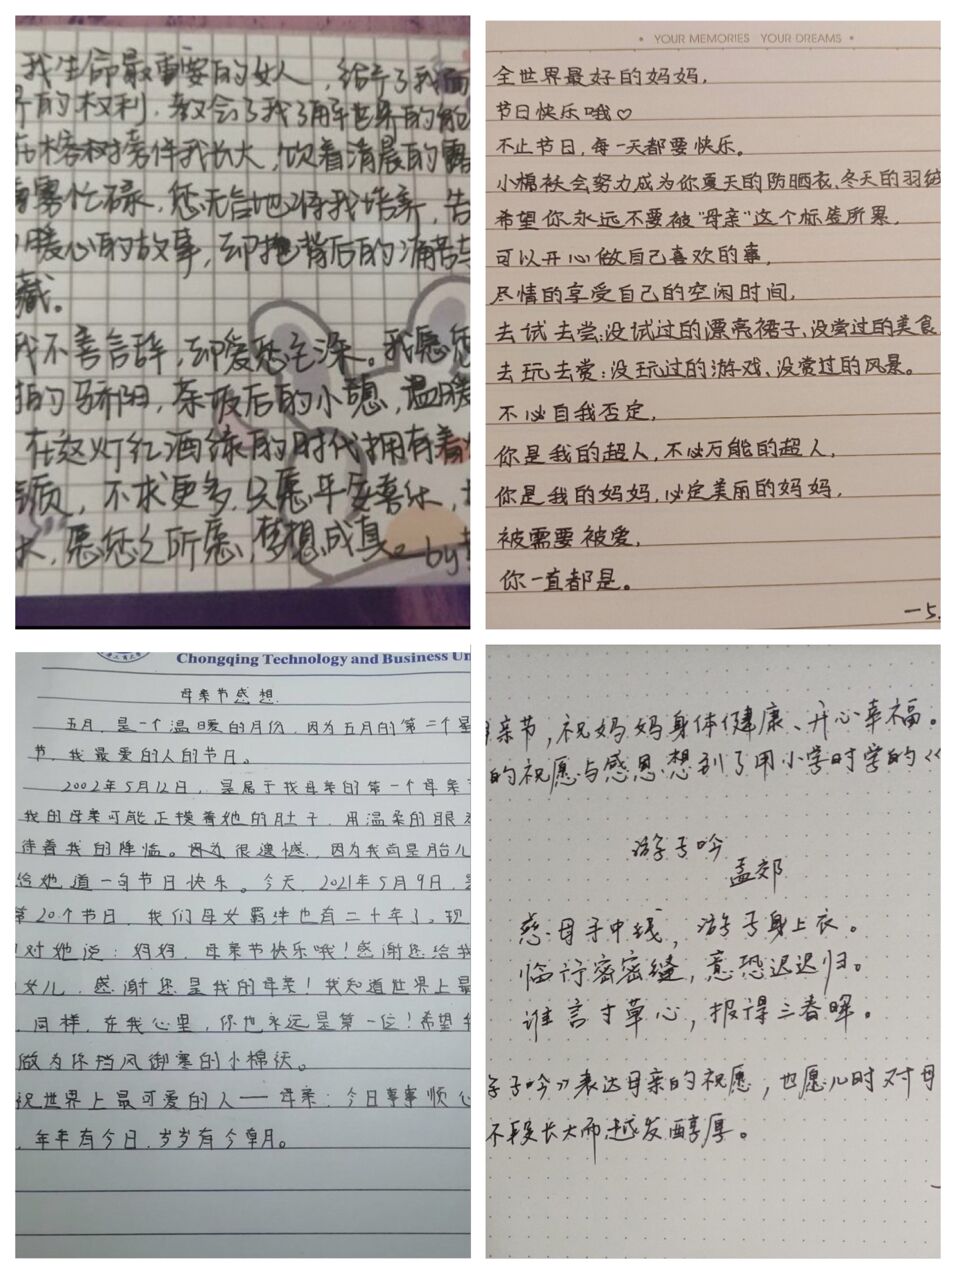 我生命最重要的女人，给予了我
界的权利，教会了我了解世界的能
旁伴我长大，饮着清晨的露
雾忙碌，您无怨地将我培养，告
暖心的故事，却把背后的痛苦
藏。
我不善言辞，却爱您至深。我愿您
的骄阳，茶饭后的小憩，温暖
在这灯红酒绿的时代拥有着
不求更多，只愿平安喜乐，
愿您之所愿，梦想成真。by
YOUR MEMORIES YOUR DREAMS
全世界最好的妈妈，
节日快乐哦♡
不止节日，每一天都要快乐。
小棉袄会努力成为你夏天的防晒衣、冬天的羽绒
希望你永远不要被“母亲”这个标签所累，
可以开心做自己喜欢的事，
尽情的享受自己的空闲时间，
去试去尝：没试过的漂亮裙子、没尝过的美食
去玩去赏：没玩过的游戏、没赏过的风景。
不必自我否定，
你是我的超人，不必万能的超人，
你是我的妈妈，必定美丽的妈妈，
被需要被爱，
你一直都是。
—5.
Chongqing Technology and Business Un
母亲节感想
五月，是一个温暖的月份，因为五月的第二个星
节，我最爱的人的节日。
2002年5月12日，是属于我母亲的第一个母亲
我的母亲可能正摸着她的肚子，用温柔的眼
待着我的降临。很遗憾，因为我尚是胎儿
给她道一句节日快乐。今天，2021年5月9日，是
第20个节日，我们母女羁绊也有二十年了。现
对她说：妈妈，母亲节快乐哦！感谢您给我
女儿，感谢您是我的母亲！我知道世界上最
，同样，在我心里，你也永远是第一位！希望
做为你挡风御寒的小棉袄。
祝世界上最可爱的人——母亲：今日事事顺心
，年年有今日，岁岁有今朝。
母亲节，祝妈妈身体健康、开心幸福。
的祝愿与感恩想到了用小学时学的《
游子吟
孟郊
慈母手中线，游子身上衣。
临行密密缝，意恐迟迟归。
谁言寸草心，报得三春晖。
游子吟》表达母亲的祝愿，也愿儿时对母
不段长大而越发醇厚。